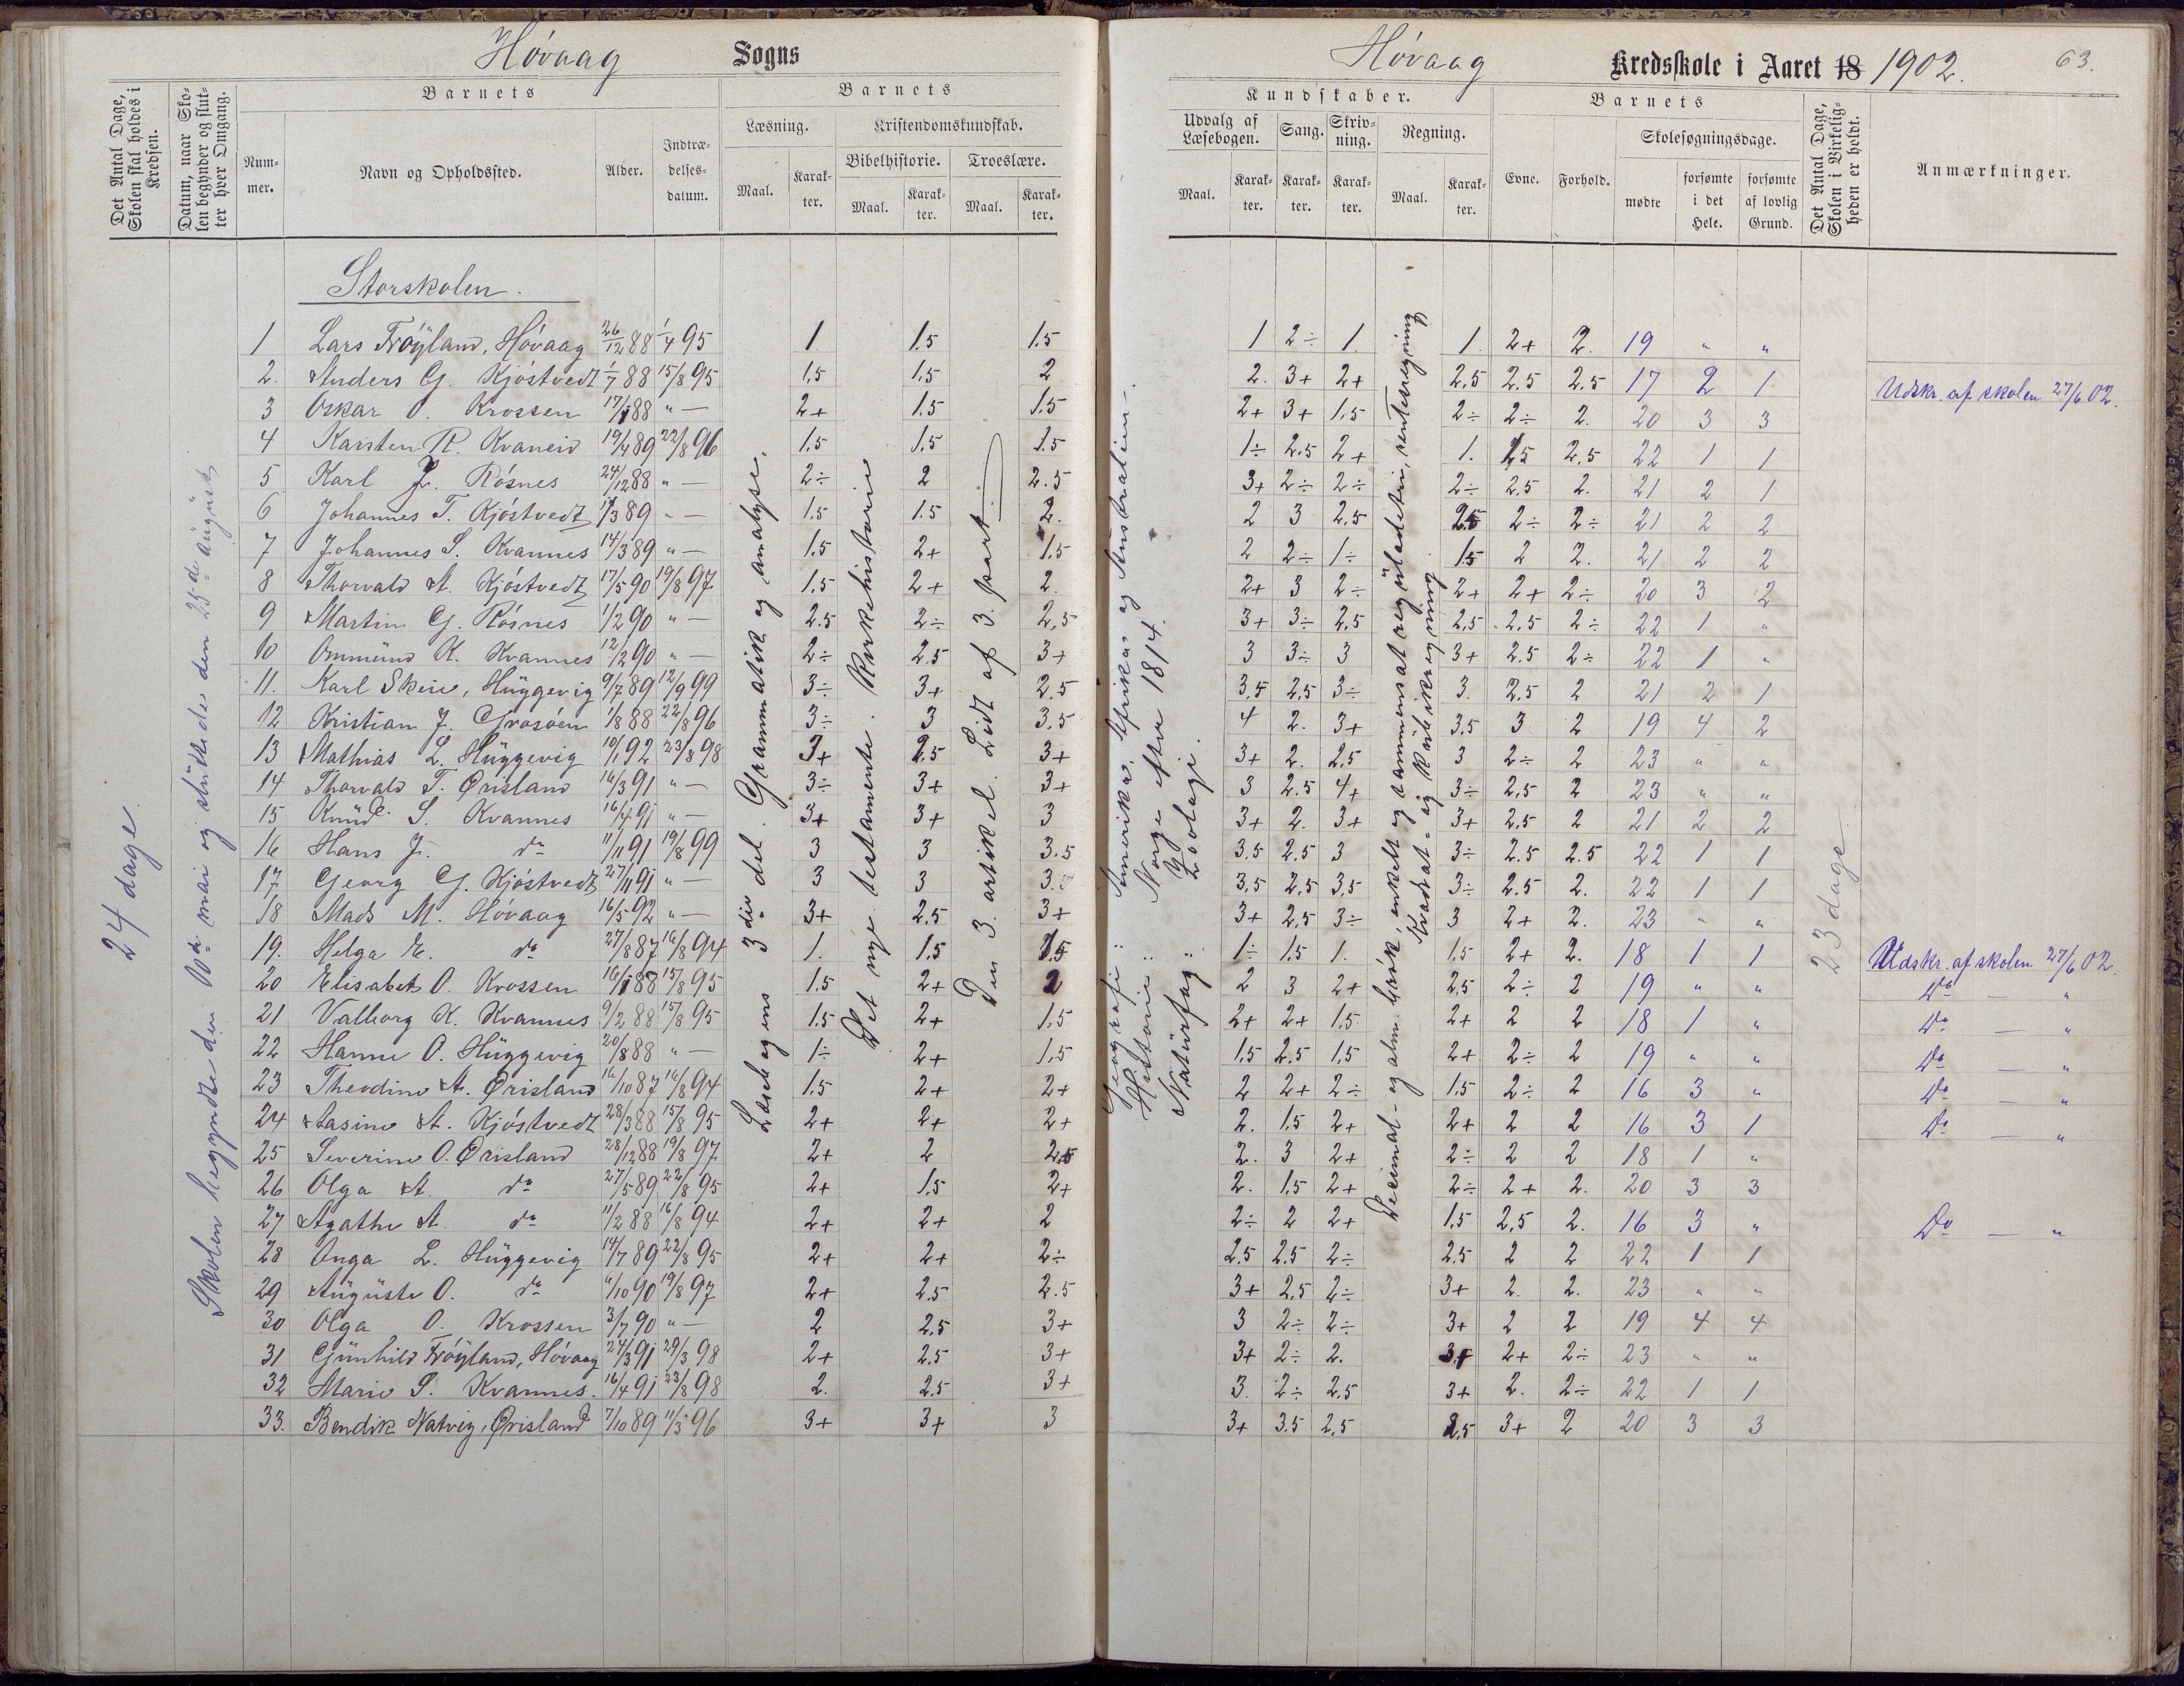 Høvaag Sogns
Det Antal Dage, Skolen skal holdes i Kredsen.
Datum, naar Skolen begynder og slutter hver Omgang.
Barnets
Barnets
Nummer.
Navn og Opholdssted.
Alder.
Indtrædelsesdatum.
Læsning.
Kristendomskundskab.
Bibelhistorie.
Troeslære.
Maal.
Karakter.
Maal.
Karakter.
Maal.
Karakter.
24 dage.
Skolen begyndte den 10de mai og sluttede den 25de august
Storskolen.
Læsebogens 3die del. Grammatik og analyse.
Det nye testamente. Kirkehistorie
Den 3. artikel. Lidt af 3. part.
1 Lars Frøyland, Høvaag 26/12 88 1/4 95 1 1.5 1.5
2. Anders G. Kjøstvedt 1/7 88 15/8 95 1.5 1.5 2
3 Oskar O. Krossen 17/1 88 " — 2+ 1.5 1.5
4 Karsten R. Kvaneid 19/4 89 22/8 96 1.5 1.5 1.5
5 Karl J. Røsnes 24/12 88 " — 2÷ 2 2.5
6 Johannes T. Kjøstvedt 1/3 89 " — 1.5 1.5 2.
7 Johannes S. Kvannes 14/3 89 " — 1.5 2+ 1.5
8 Thorvald A. Kjøstvedt 17/5 90 19/8 97 1.5 2+ 2.
9 Martin G. Røsnes 1/2 90 " — 2.5 2÷ 2.5
10 Ommund K. Kvannes 12/2 90 " — 2÷ 2.5 3+
11. Karl Skeie, Huggevig 9/7 89 12/9 99 3÷ 3+ 2.5
12 Kristian J. Grosøen 1/8 88 22/8 96 3÷ 3 3.5
13 Mathias L. Huggevig 10/1 92 23/8 98 3+ 2.5 3+
14 Thorvald T. Ørisland 16/3 91 " — 3÷ 3+ 3+
15 Knud S. Kvannes 16/4 91 " — 3+ 3+ 3
16 Hans J. do 11/11 91 19/8 99 3 3 3.5
17. Georg G. Kjøstvedt 27/11 91 " — 3 3 3.
18 Mads M. Høvaag 16/5 92 " — 3+ 2.5 3+
19. Helga E. do 27/8 87 16/8 94 1. 1.5 1.5
20 Elisabet O. Krossen 16/1 88 15/8 95 1.5 2+ 2
21 Valborg K. Kvannes 9/2 88 15/8 95 1.5 2+ 1.5
22 Hanne O. Huggevig 20/8 88 " — 1÷ 2+ 1.5
23 Theodine A. Ørisland 16/10 87 16/8 94 1.5 2+ 2+
24 Aasine A. Kjøstvedt 28/3 88 15/8 95 2+ 2+ 2+
25 Severine O. Ørisland 28/12 88 19/8 97 2+ 2 2.5
26 Olga A. do 27/5 89 22/8 95 2+ 1.5 2+
27 Agathe A. do 11/2 88 16/8 94 2+ 2+ 2
28 Onga L. Huggevig 14/7 89 22/8 95 2+ 2+ 2÷
29 Auguste O. do 6/10 90 19/8 97 2+ 2.5 2.5
30 Olga O. Krossen 3/7 90 " — 2 2.5 3+
31 Gunhild Frøyland, Høvaag 24/3 91 29/3 98 2+ 2.5 3+
32 Marie S. Kvannes. 16/4 91 23/8 98 2. 2.5 3+
33. Bendik Natvig, Ørisland 7/10 89 11/5 96 3+ 3+ 3
Høvaag Kredsskole i Aaret 18 1902. 63.
Kundskaber.
Barnets
Udvalg af Læsebogen.
Sang.
Skrivning.
Regning.
Evne.
Forhold.
Skolesøgningsdage.
Det Antal Dage, Skolen i Virkeligheden er holdt.
Anmærkninger.
Maal.
Karakter.
Karakter.
Karakter.
Maal.
Karakter.
mødte
forsømte i det Hele.
forsømte af lovlig Grund.
Geografi: Amerika, Afrika og Australien.
Historie: Norge efter 1814.
Naturfag: Zoologi.
Decimal- og alm. brøk, enkelt og sammensat reguladetri, rentesregning
Kvadrat- og kubikregning
23 dage
1 2÷ 1. 1. 2+ 2. 19 " "
2. 3+ 2+ 2.5 2.5 2.5 17 2 1 Udskr. af skolen 27/6 02.
2+ 3+ 1.5 2÷ 2÷ 2. 20 3 3
1÷ 2.5 2+ 1. 1.5 2.5 22 1 1
3+ 2÷ 2÷ 2÷ 2.5 2. 21 2 1
2 3 2.5 2.5 2÷ 2÷ 21 2 2
2 2÷ 1÷ 1.5 2 2. 21 2 2
2+ 3 2÷ 2+ 2+ 2÷ 20 3 2
3+ 3÷ 2.5 2.5 2.5 2÷ 22 1 "
3 3÷ 3 3+ 2.5 2÷ 22 1 "
3.5 2.5 3÷ 3. 2.5 2 21 2 1
4 2. 3+ 3.5 3 2 19 4 2
3+ 2. 2.5 3 2÷ 2 23 " "
3 2.5 4+ 3÷ 2.5 2 23 " "
3+ 2. 3+ 3+ 2.5 2 21 2 2
3.5 2.5 3 3÷ 2.5 2.5 22 1 1
3.5 2.5 3.5 3÷ 2.5 2. 22 1 1
3+ 2.5 3÷ 3 2+ 2. 23 " "
1÷ 1.5 1. 1.5 2+ 2. 18 1 1 Udskr. af skolen 27/6 02.
2 3 2+ 2.5 2÷ 2 19 " " Do — "
2+ 2+ 1.5 2+ 2 2 18 1 " Do — "
1.5 2.5 1.5 2+ 2÷ 2 19 " " Do — "
2 2+ 2÷ 1.5 2÷ 2 16 3 " Do — "
2. 1.5 2+ 2+ 2 2 16 3 1 Do — "
2. 3 2+ 2÷ 2 2 18 1 "
2. 1.5 2+ 2÷ 2+ 2. 20 3 3
2÷ 2 2+ 1.5 2.5 2. 16 3 " Do — "
2.5 2.5 2÷ 2.5 2 2 22 1 1
3+ 2.5 2÷ 3+ 2. 2. 23 " "
3 2÷ 2÷ 3+ 2 2 19 4 4
3+ 2÷ 2. 3+ 2+ 2÷ 23 " "
3. 2÷ 2.5 3+ 2. 2÷ 22 1 1
3+ 3.5 2.5 2.5 3+ 2 20 3 3